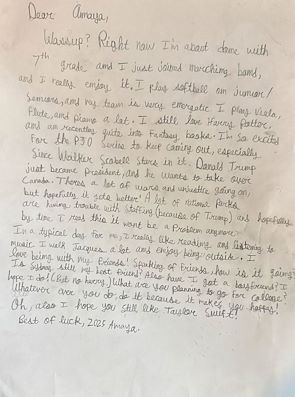 Dear Amaya,
Wassup? Right now I'm about done with
7th grade and I just joined marching band,
and I really enjoy it. I play softball on junior/
seniors, and my team is very energetic. I play Viola,
Flute, and piano a lot. I still love Harry Potter,
and am recently quite into Fantasy books. I'm so excited
For the PJO series to keep coming out, especially
Since Walker Scobell stars in it. Donald Trump
just became president, and he wants to take over
Canada. There's a lot of wars and injustice going on,
but hopefully it gets better! A lot of national parks
are having trouble with staffing (because of Trump) and hopefully
by time I read this it wont be a Problem anymore.
In a typical day for me, I really like reading and listening to
music. I walk Jacques a lot and enjoy being outside. I
love being with my Friends! Speaking of Friends, how is it going?
Is still my best Friend? Also have I got a boyfriend? I
hope I do! (but no hurry.) What are you planning to go for college?
Whatever are you do, do it because it makes you happy!
Oh, also I hope you still like Taylor Swift!
Best of luck, 2025 Amaya.